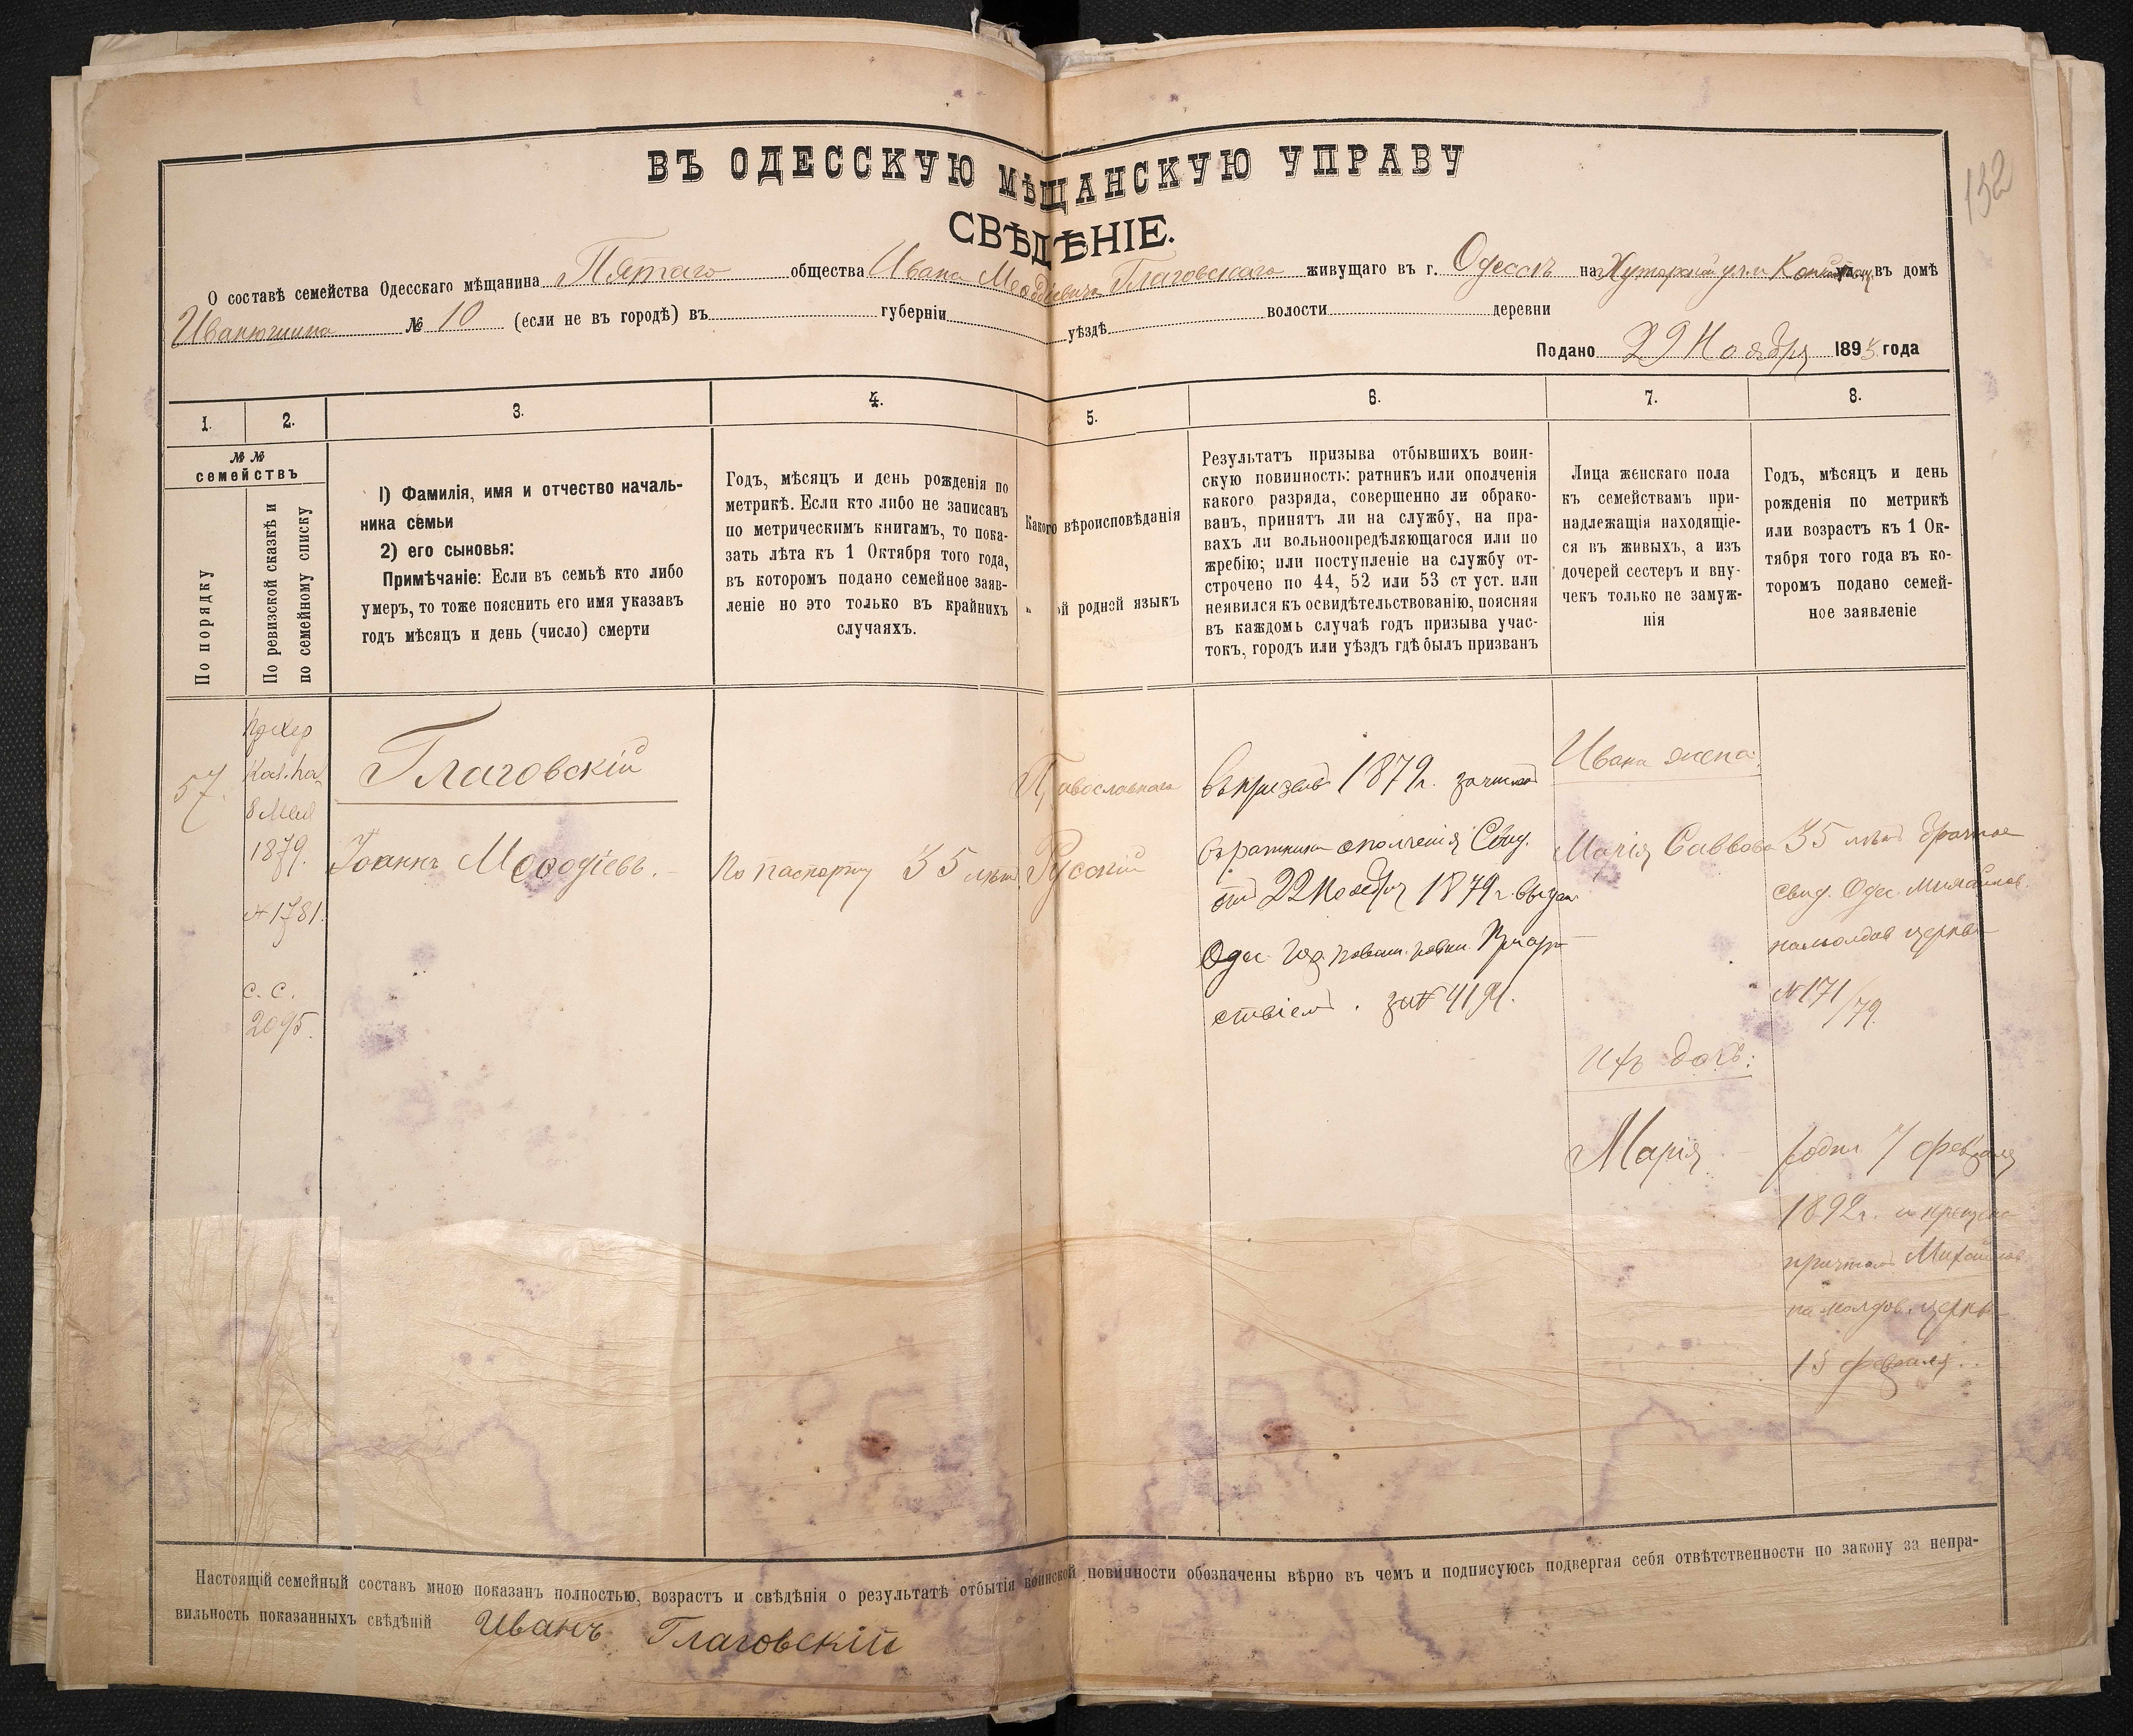 132
ВЪ ОДЕССКУЮ МѢЩАНСКУЮ УПРАВУ
СВѢДѢНІЕ.
О составѣ семейства Одесскаго мѣщанина Пятаго общества Ивана Меѳодіевича Глаговскаго живущаго въ г. Одессѣ на Хуторской ул. и въ домѣ
Иванюшина № 10 (если не въ городѣ) въ губерніи уѣздѣ волости деревни
Подано 29 Ноября 189 года
1.
2.
3.
4.
5.
6.
7.
8.
№ №
семействъ
По порядку
По ревизской сказкѣ и
по семейному списку
1) Фамилія, имя и отчество началь-
ника семьи
2) его сыновья:
Примѣчаніе: Если въ семьѣ кто либо
умеръ, то тоже пояснить его имя указавъ
годъ мѣсяцъ и день (число) смерти
Годъ, мѣсяцъ и день рожденія по
метрикѣ. Если кто либо не записанъ
по метрическимъ книгамъ, то пока-
зать лѣта къ 1 Октября того года,
въ которомъ подано семейное заяв-
леніе но это только въ крайнихъ
случаяхъ.
Какого вѣроисповѣданія
й родной языкъ
Результатъ призыва отбывшихъ воин-
скую повинность: ратникъ или ополченія
какого разряда, совершенно ли обрако-
ванъ, принятъ ли на службу, на пра-
вахъ ли вольноопредѣляющагося или по
жребію; или поступленіе на службу от-
строчено по 44, 52 или 53 ст уст. или
неявился къ освидѣтельствованію, поясняя
въ каждомъ случаѣ годъ призыва учас-
токъ, городъ или уѣздъ гдѣ былъ призванъ
Лица женскаго пола
къ семействамъ при-
надлежащія находящіе-
ся въ живыхъ, а изъ
дочерей сестеръ и вну-
чекъ только не замуж-
нія
Годъ, мѣсяцъ и день
рожденія по метрикѣ
или возрастъ къ 1 Ок-
тября того года въ ко-
торомъ подано семей-
ное заявленіе
57.
8 Мая
1879.
№ 1781.
с. с.
2095.
Глаговскій
Іоаннъ Меѳодіевъ.
По паспорту 35 лѣтъ
Православнаго
Русскій
въ призывъ 1879 г. зачисленъ
въ ратники ополченія Свид.
отъ 22 Ноября 1879 г. выдан
Одес. Гор. по воин. повин. Присут
ствіемъ. за № 4191.
Ивана жена
Марія Саввова
35 лѣтъ брачное
свид. Одес. Михайлов.
намолдав церкви
№ 171/79.
Ихъ дочь:
Марія
родил 7 февраля
1892 г. и крещена
причтомъ Михайлов
на молдов. церкви
15 февраля.
Настоящій семейный составъ мною показанъ полностью, возрастъ и свѣдѣнія о результатѣ отбытія воинской повинности обозначены вѣрно въ чемъ и подписуюсь подвергая себя отвѣтственности по закону за непра-
вильность показанныхъ свѣдѣній Иванъ Глаговскій